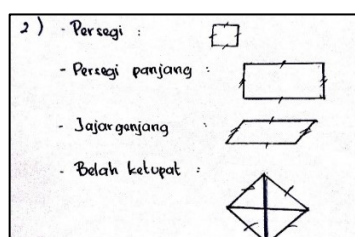 2) - Persegi :
- Persegi panjang :
- Jajar genjang :
- Belah ketupat :